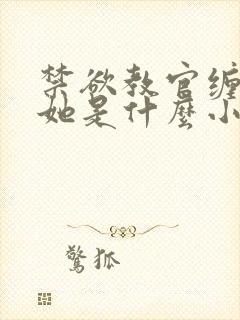 禁欲教官缠
她是什麼小
驚狐